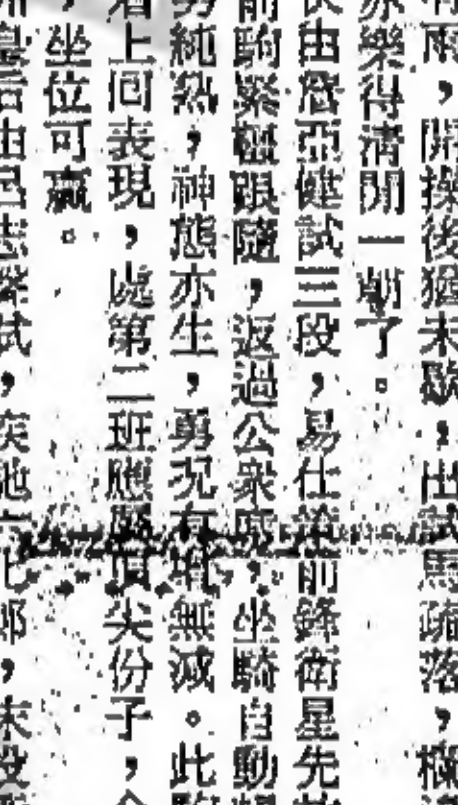 雨，開操後猶未歇，出試馬疏落，欄
亦樂得清閒一朝了。
由詹亞健試三段，易仕 前鋒衛星先
前駒緊韁跟隨，返過公衆席，坐騎自動
純熟，神態亦生，勇況有 無減。此
着上回表現，處第二班應 頂尖份子，
，坐位可贏。
后由呂志 試，疾馳 化郎，末段